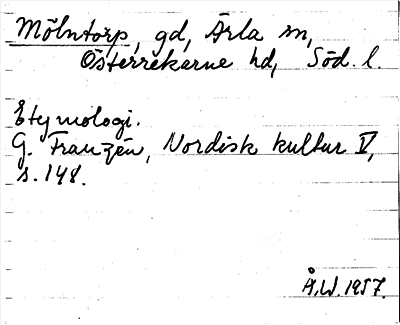 Mölntorp, gd, Ärla sn,
Österrekarne hd, Söd. l.
Etymologi.
G. Franzén, Nordisk kultur V,
s. 148.
Å.W. 1957.